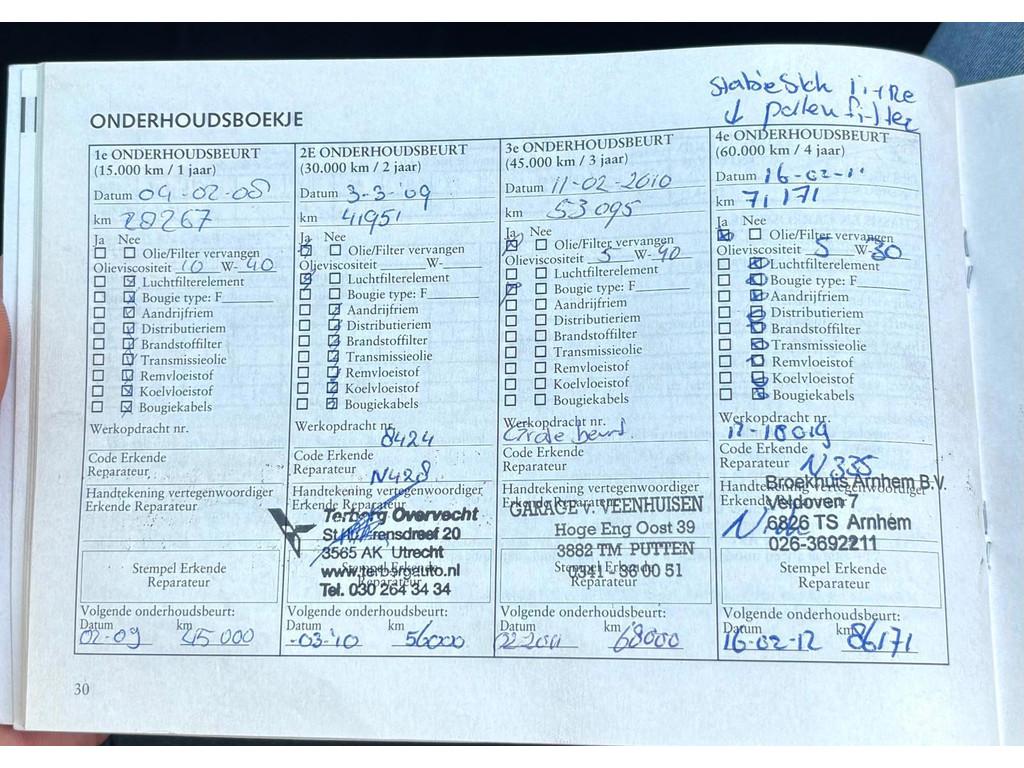 ONDERHOUDSBOEKJE
↓ pollenfilter
1e ONDERHOUDSBEURT
(15.000 km / 1 jaar)
Datum 04-02-08
km 28267
Ja Nee
Olie/Filter vervangen
Olieviscositeit 10 W-40
Luchtfilterelement
Bougie type: F
Aandrijfriem
Distributieriem
Brandstoffilter
Transmissieolie
Remvloeistof
Koelvloeistof
Bougiekabels
Werkopdracht nr.
Code Erkende
Reparateur
Handtekening vertegenwoordiger
Erkende Reparateur
Stempel Erkende
Reparateur
Volgende onderhoudsbeurt:
Datum km
02-09 45000
2E ONDERHOUDSBEURT
(30.000 km / 2 jaar)
Datum 3-3-'09
km 41951
Ja Nee
Olie/Filter vervangen
Olieviscositeit W-
Luchtfilterelement
Bougie type: F
Aandrijfriem
Distributieriem
Brandstoffilter
Transmissieolie
Remvloeistof
Koelvloeistof
Bougiekabels
Werkopdracht nr.
8424
Code Erkende
Reparateur N428
Handtekening vertegenwoordiger
Erkende Reparateur
Terborg Overvecht
3565 AK Utrecht
www.terborgauto.nl
Tel. 030 264 34 34
Stempel Erkende
Reparateur
Volgende onderhoudsbeurt:
Datum km
-03-'10 56000
3e ONDERHOUDSBEURT
(45.000 km / 3 jaar)
Datum 11-02-2010
km 53095
Ja Nee
Olie/Filter vervangen
Olieviscositeit 5 W-40
Luchtfilterelement
Bougie type: F
Aandrijfriem
Distributieriem
Brandstoffilter
Transmissieolie
Remvloeistof
Koelvloeistof
Bougiekabels
Werkopdracht nr.
Grote beurt
Code Erkende
Reparateur
Handtekening vertegenwoordiger
Erkende Reparateur
GARAGE v. VEENHUISEN
Hoge Eng Oost 39
3882 TM PUTTEN
0341 - 36 00 51
Stempel Erkende
Reparateur
Volgende onderhoudsbeurt:
Datum km
02-2011 68000
4e ONDERHOUDSBEURT
(60.000 km / 4 jaar)
Datum 16-02-11
km 71171
Ja Nee
Olie/Filter vervangen
Olieviscositeit 5 W-30
Luchtfilterelement
Bougie type: F
Aandrijfriem
Distributieriem
Brandstoffilter
Transmissieolie
Remvloeistof
Koelvloeistof
Bougiekabels
Werkopdracht nr.
11-10019
Code Erkende
Reparateur N335
Handtekening vertegenwoordiger
Erkende Reparateur
Broekhuis Arnhem B.V.
Velpoven 7
6826 TS Arnhem
026-3692211
Stempel Erkende
Reparateur
Volgende onderhoudsbeurt:
Datum km
16-02-12 86171
30